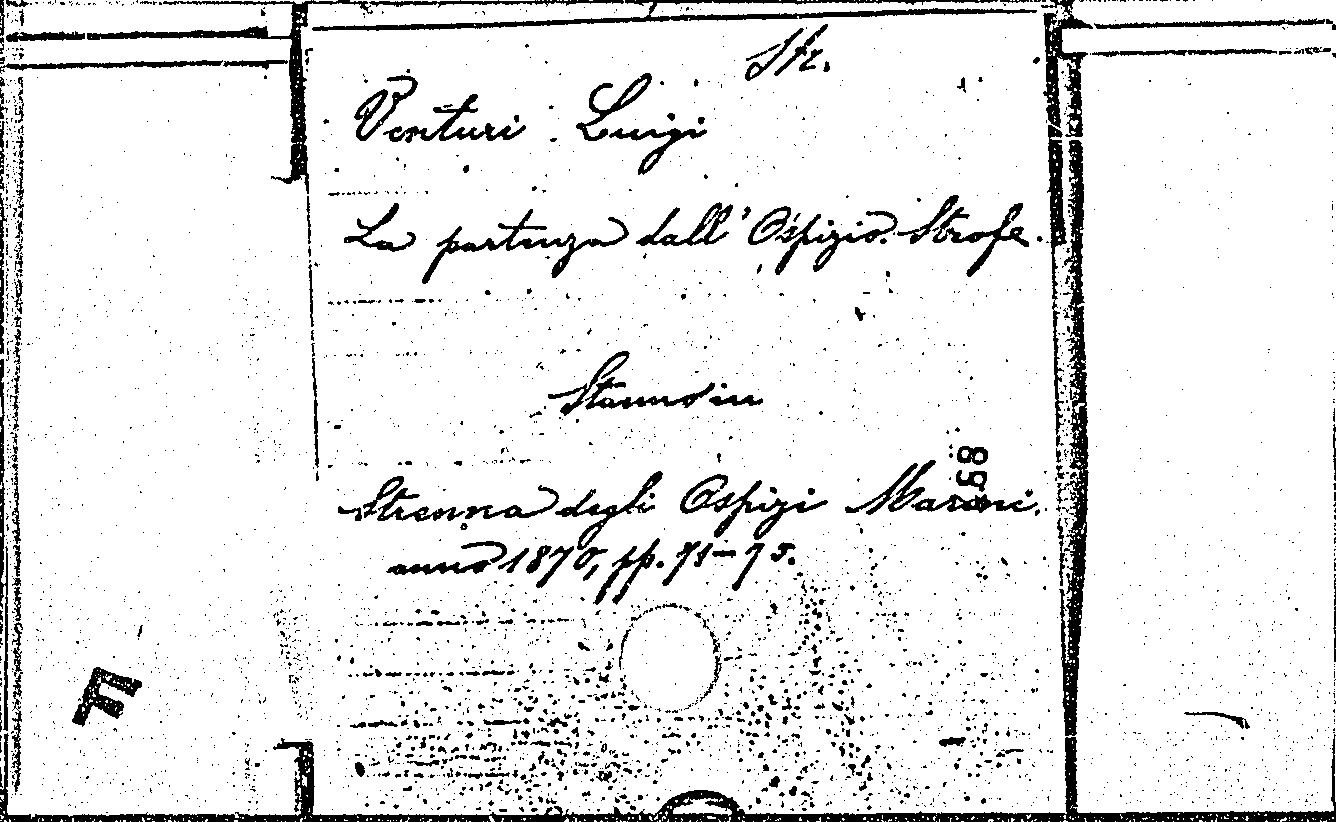 Str.
Venturi Luigi
La partenza dall'Ospizio. Strofe.
Stanno in
Strenna degli Ospizi Marini.
anno 1870, pp. 71-75.
F